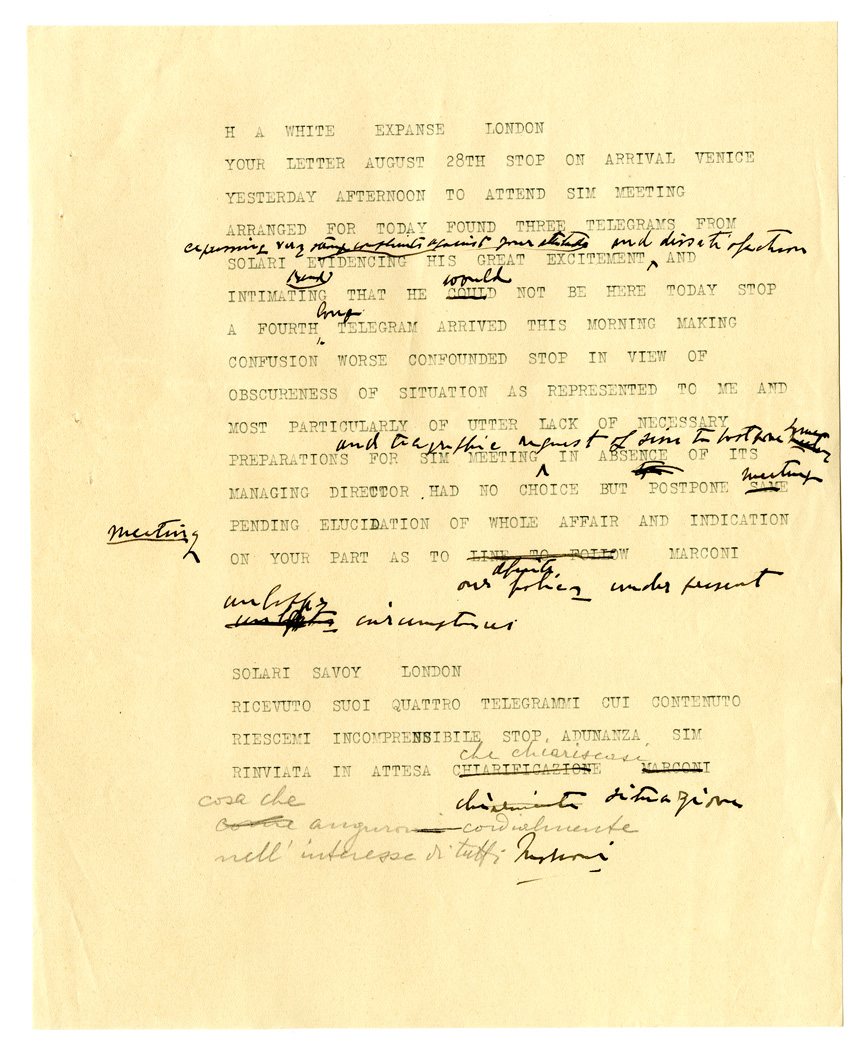 H A WHITE EXPANSE LONDON
YOUR LETTER AUGUST 28TH STOP ON ARRIVAL VENICE
YESTERDAY AFTERNOON TO ATTEND SIM MEETING
ARRANGED FOR TODAY FOUND THREE TELEGRAMS FROM
expressing very strong complaints against your attitude and dissatisfaction
SOLARI EVIDENCING HIS GREAT EXCITEMENT AND
would
INTIMATING THAT HE COULD NOT BE HERE TODAY STOP
long
A FOURTH TELEGRAM ARRIVED THIS MORNING MAKING
CONFUSION WORSE CONFOUNDED STOP IN VIEW OF
OBSCURENESS OF SITUATION AS REPRESENTED TO ME AND
MOST PARTICULARLY OF UTTER LACK OF NECESSARY
and telegraphic request of sim to postpone
PREPARATIONS FOR SIM MEETING IN ABSENCE OF ITS
meeting
MANAGING DIRECTOR HAD NO CHOICE BUT POSTPONE SAME
PENDING ELUCIDATION OF WHOLE AFFAIR AND INDICATION
meeting
ON YOUR PART AS TO LINE TO FOLLOW MARCONI
definite
our policy under present
circumstances
SOLARI SAVOY LONDON
RICEVUTO SUOI QUATTRO TELEGRAMMI CUI CONTENUTO
RIESCEMI INCOMPRENSIBILE STOP ADUNANZA SIM
che chiariscasi
RINVIATA IN ATTESA CHIARIFICAZIONE MARCONI
cosa che situazione
come auguromi cordialmente
nell' interesse di tutti